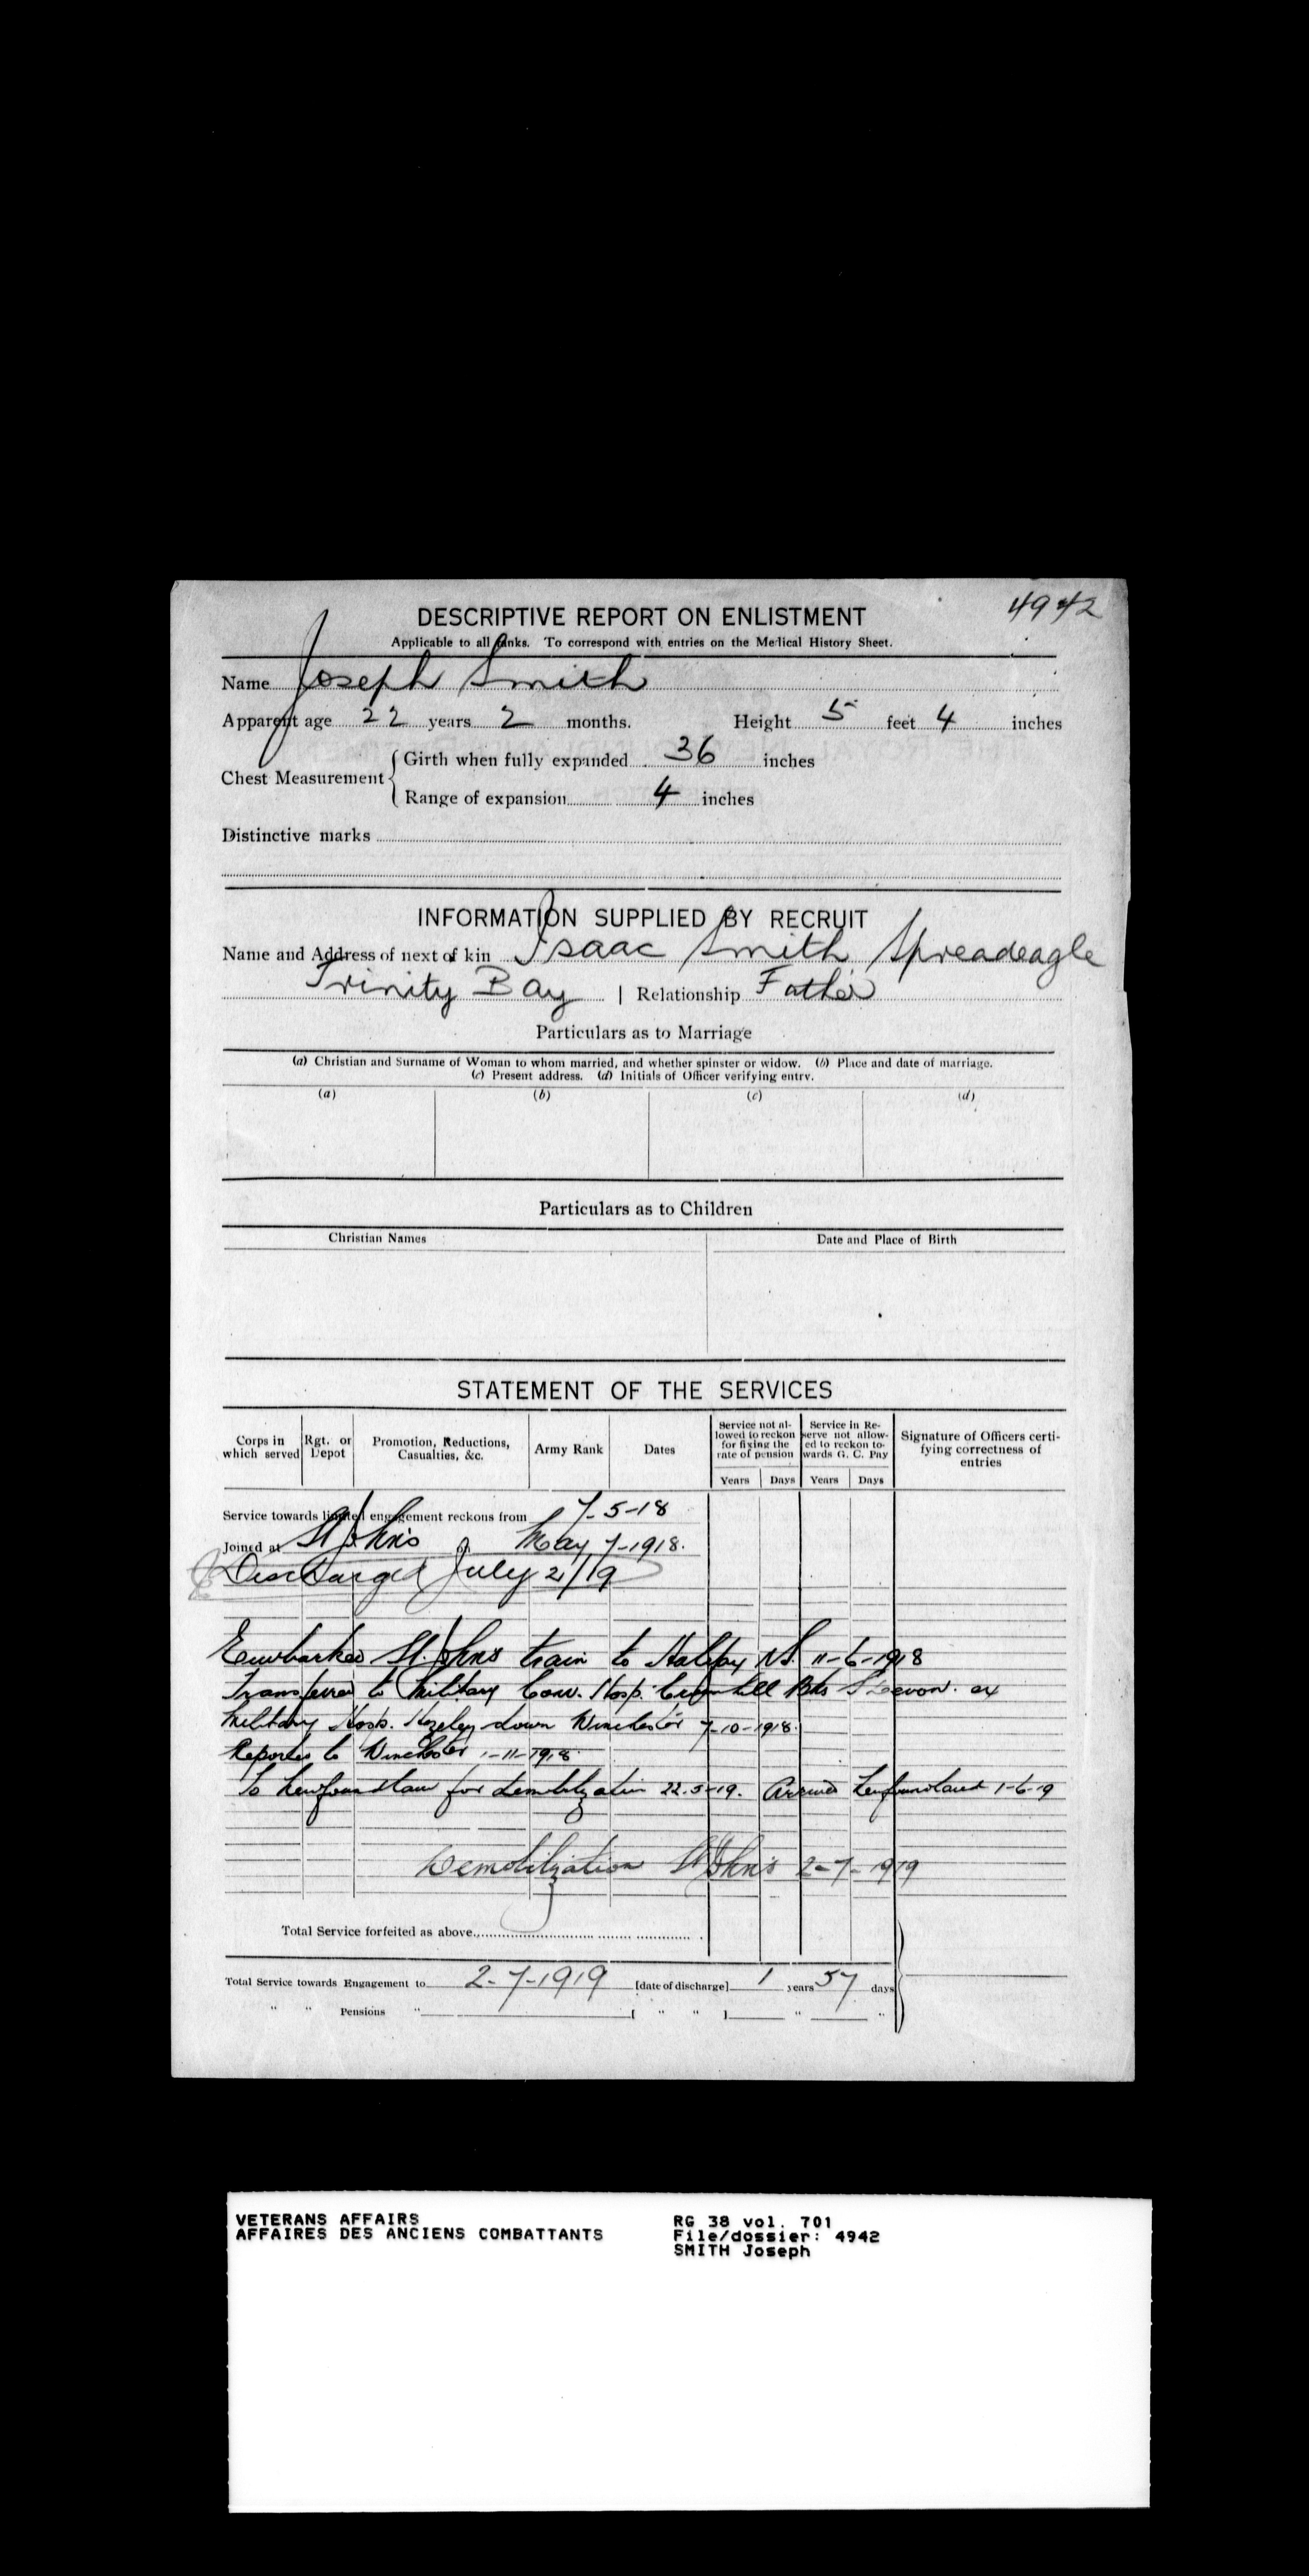 4942
DESCRIPTIVE REPORT ON ENLISTMENT
Applicable to all ranks. To correspond with entries on the Medical History Sheet.
Name Joseph Smith
Apparent age 22 years 2 months. Height 5 feet 4 inches
Chest Measurement { Girth when fully expanded 36 inches
Range of expansion 4 inches
Distinctive marks
INFORMATION SUPPLIED BY RECRUIT
Name and Address of next of kin Isaac Smith Spreadeagle
Trinity Bay | Relationship Father
Particulars as to Marriage
(a) Christian and Surname of Woman to whom married, and whether spinster or widow. (b) Place and date of marriage.
(c) Present address. (d) Initials of Officer verifying entry.
(a) (b) (c) (d)
Particulars as to Children
Christian Names Date and Place of Birth
STATEMENT OF THE SERVICES
Corps in which served Rgt. or Depot Promotion, Reductions, Casualties, &c. Army Rank Dates Service not allowed to reckon for fixing the rate of pension Service in Reserve not allowed to reckon towards G. C. Pay Signature of Officers certifying correctness of entries
Years Days Years Days
Service towards limited engagement reckons from 7-5-18
Joined at St Johns on May 7-1918.
Discharged July 2/19
Embarked St. Johns train to Halifax N.S. 11-6-1918
Transferred to Military Conv. Hosp. Bks Devon. ex
Military Hosp. Hazeley down Winchester 7-10-1918.
Reported to Winchester 1-11-1918
To Newfoundland for demobilization 22-5-19. Arrived Newfoundland 1-6-19
Demobilization St Johns 2-7-1919
Total Service forfeited as above
Total Service towards Engagement to 2-7-1919 [date of discharge] 1 years 57 days
" " Pensions " [ " " ] " "
VETERANS AFFAIRS RG 38 vol. 701
AFFAIRES DES ANCIENS COMBATTANTS File/dossier: 4942
SMITH Joseph